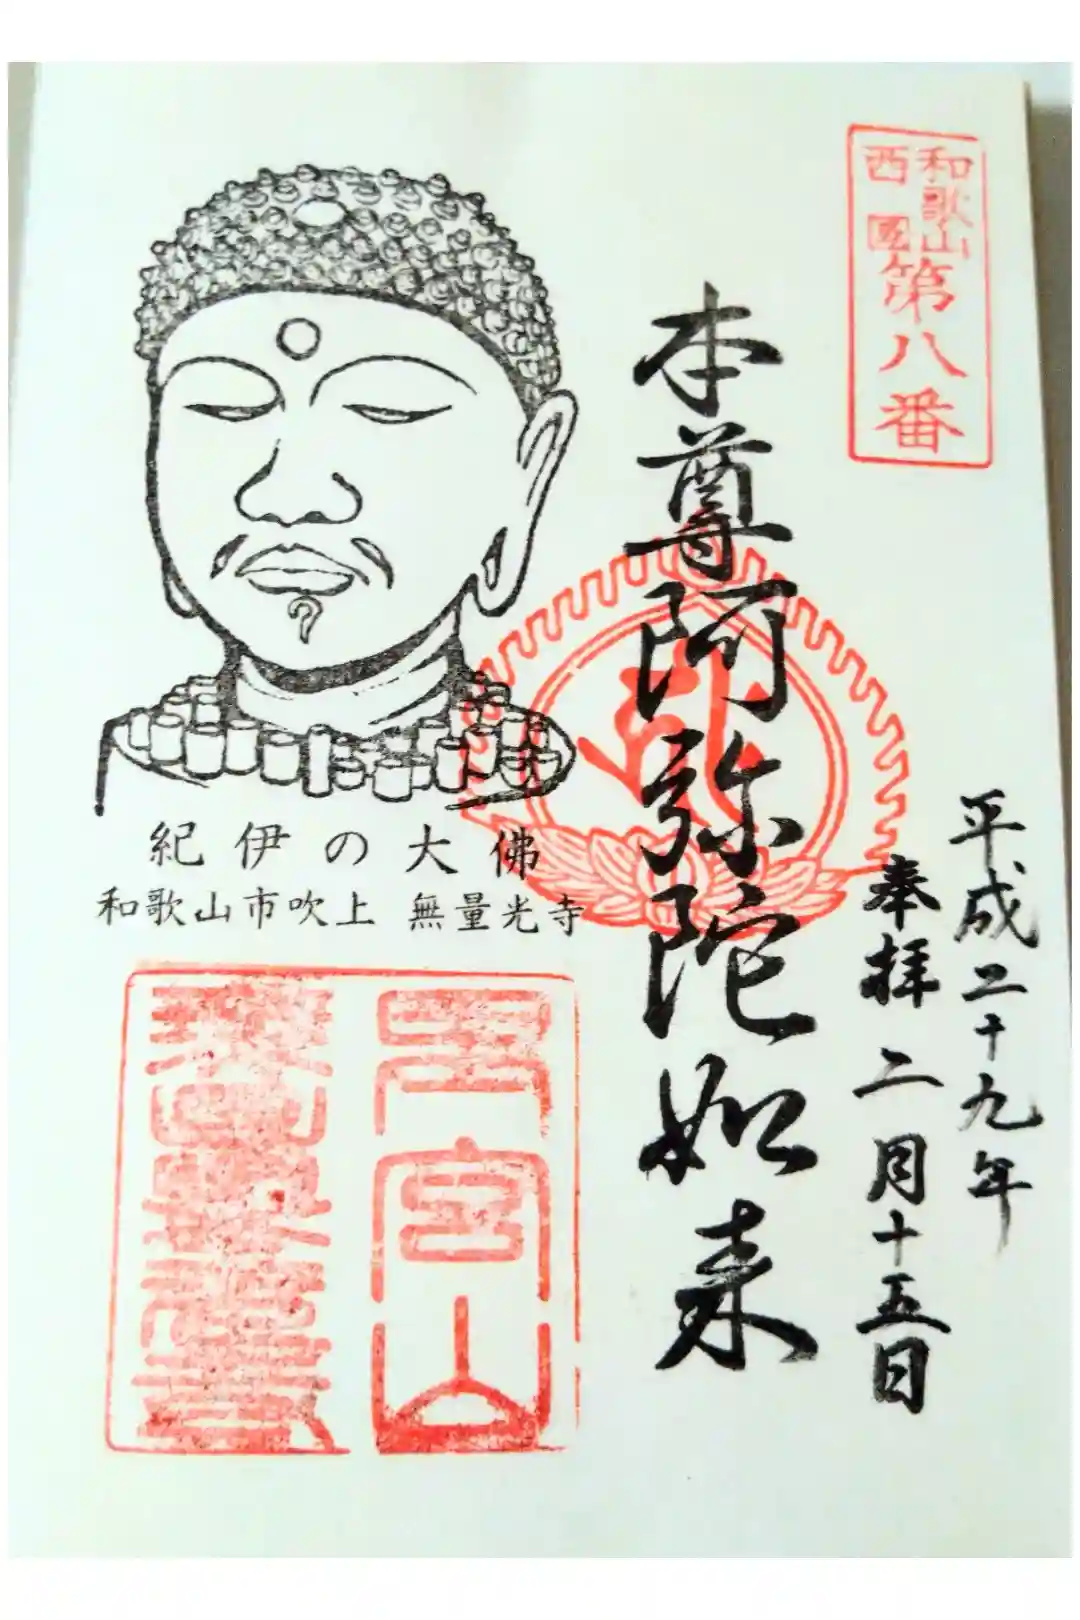 和歌山
西國
第八番
平成二十九年
奉拝 二月十五日
本尊阿弥陀如来
紀伊の大佛
和歌山市吹上 無量光寺